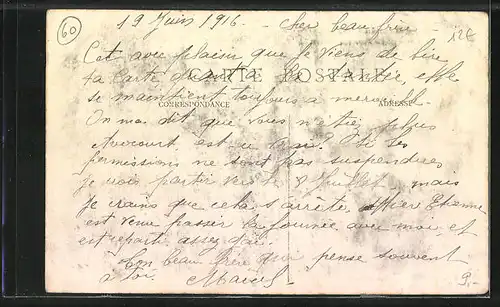 60
19 Juin 1916 - Cher beau frère
12€
C'est avec plaisir que je viens de lire
ta Carte santé elle
CARTE POSTALE
se maintient toujours à merveille
CORRESPONDANCE
ADRESSE
On m'a dit que vous n'étiez plus
Avocourt est ce vrai? Si les
permissions ne sont pas suspendues
je vais partir vers le 8 Juillet, mais
je crains que cela s'arrête. Etienne
est venu passer la journée avec moi et
est reparti assez gai.
Ton beau frère qui pense souvent
à toi. Marcel
9.-